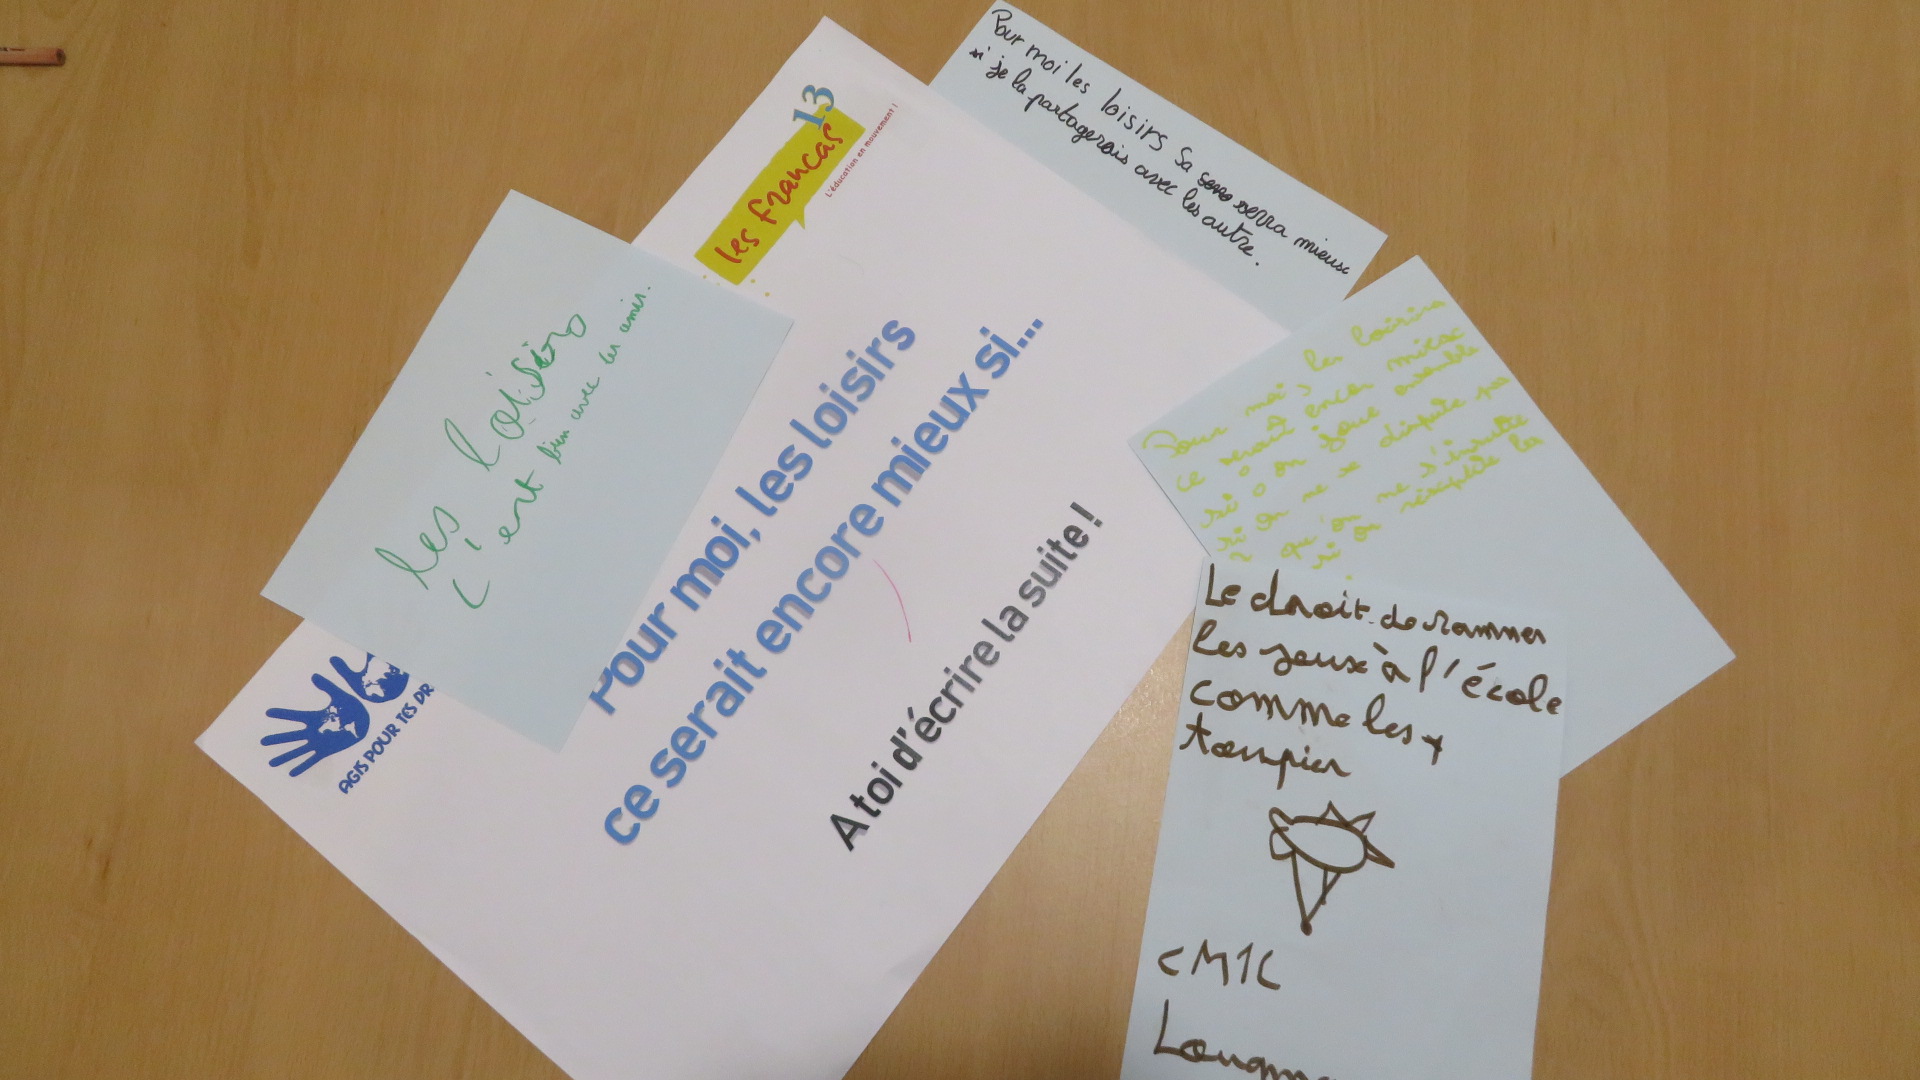 13
les francas
L'éducation en mouvement !
Pour moi, les loisirs
ce serait encore mieux si...
A toi d'écrire la suite !
AGIS POUR TES DR
Pour moi les loisirs sa serra mieux
si je la partagerais avec les autre.
les loisirs
c'est bien avec les amis.
Pour moi, les loisirs
ce serait encor mieux
si on joue ensemble
si on ne se dispute pas
qu'on ne s'insulte
si on les
Le droit de rammer
les jeux à l'école
comme les
toupies
CM1C